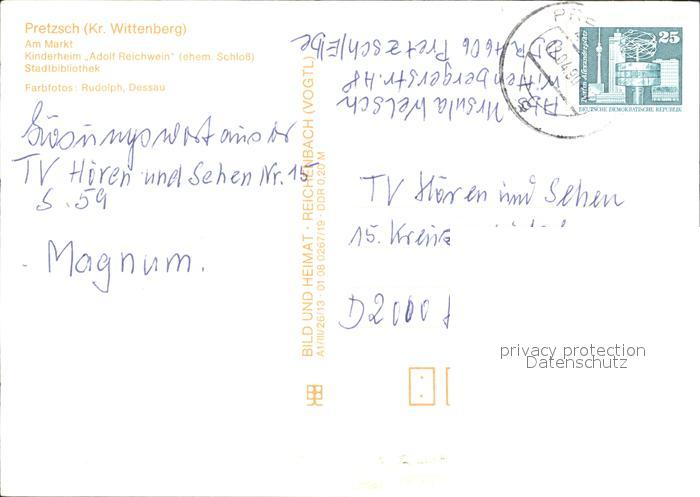 Pretzsch (Kr. Wittenberg)
Am Markt
Kinderheim „Adolf Reichwein" (ehem. Schloß)
Stadtbibliothek
Farbfotos: Rudolph, Dessau
Lösungswort aus der
TV Hören und Sehen Nr. 15
S. 59
Magnum.
BILD UND HEIMAT · REICHENBACH (VOGTL)
A1/III/26/13 · 01 08 0267/19 · DDR 0,20 M
Abs. Ursula Welsch
Wittenbergerstr.
DR 4606 Pretzsch/Elbe
25
DEUTSCHE DEMOKRATISCHE REPUBLIK
TV Hören und Sehen
15.
D 2000
privacy protection
Datenschutz